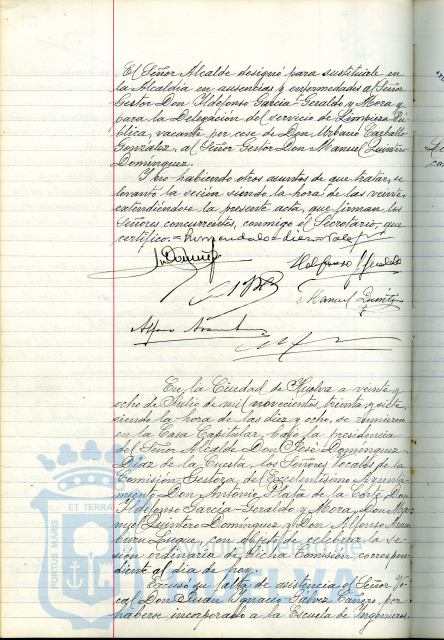 El Señor Alcalde designó para sustituirle en
la Alcaldía en ausencias y enfermedades al Señor
Gestor Don Ildefonso García-Geraldo y Mora y
para la Delegación del servicio de Limpieza Pú-
blica, vacante por cese de Don Urbano Carballo
González, al Señor Gestor Don Manuel Quintero
Domínguez.
Y no habiendo otros asuntos de que tratar, se
levantó la sesión siendo la hora de las veinte,
extendiéndose la presente acta, que firman los
Señores concurrentes, conmigo el Secretario, que
certifico.=
Manuel Quintero
En la Ciudad de Huelva a veinte y
ocho de Julio de mil novecientos treinta y siete
siendo la hora de las diez y ocho, se reunieron
en la Casa Capitular bajo la presidencia
del Señor Alcalde Don José Domínguez
Díaz de la Cuesta, los Señores Vocales de la
Comisión Gestora del Excelentísimo Ayunta-
miento Don Antonio Plata de la Corte, Don
Ildefonso García-Geraldo y Mora, Don Ma-
nuel Quintero Domínguez y Don Alfonso Aram-
buru Luque, con objeto de celebrar la se-
sión ordinaria de dicha Comisión correspon-
diente al día de hoy.
Excusó su falta de asistencia el Señor Vo-
cal Don Juan Ignacio Gálvez Cañero por
haberse incorporado a la Escuela de Ingenieros,
PORTUS MARIS ET TERRAE
HUELVA